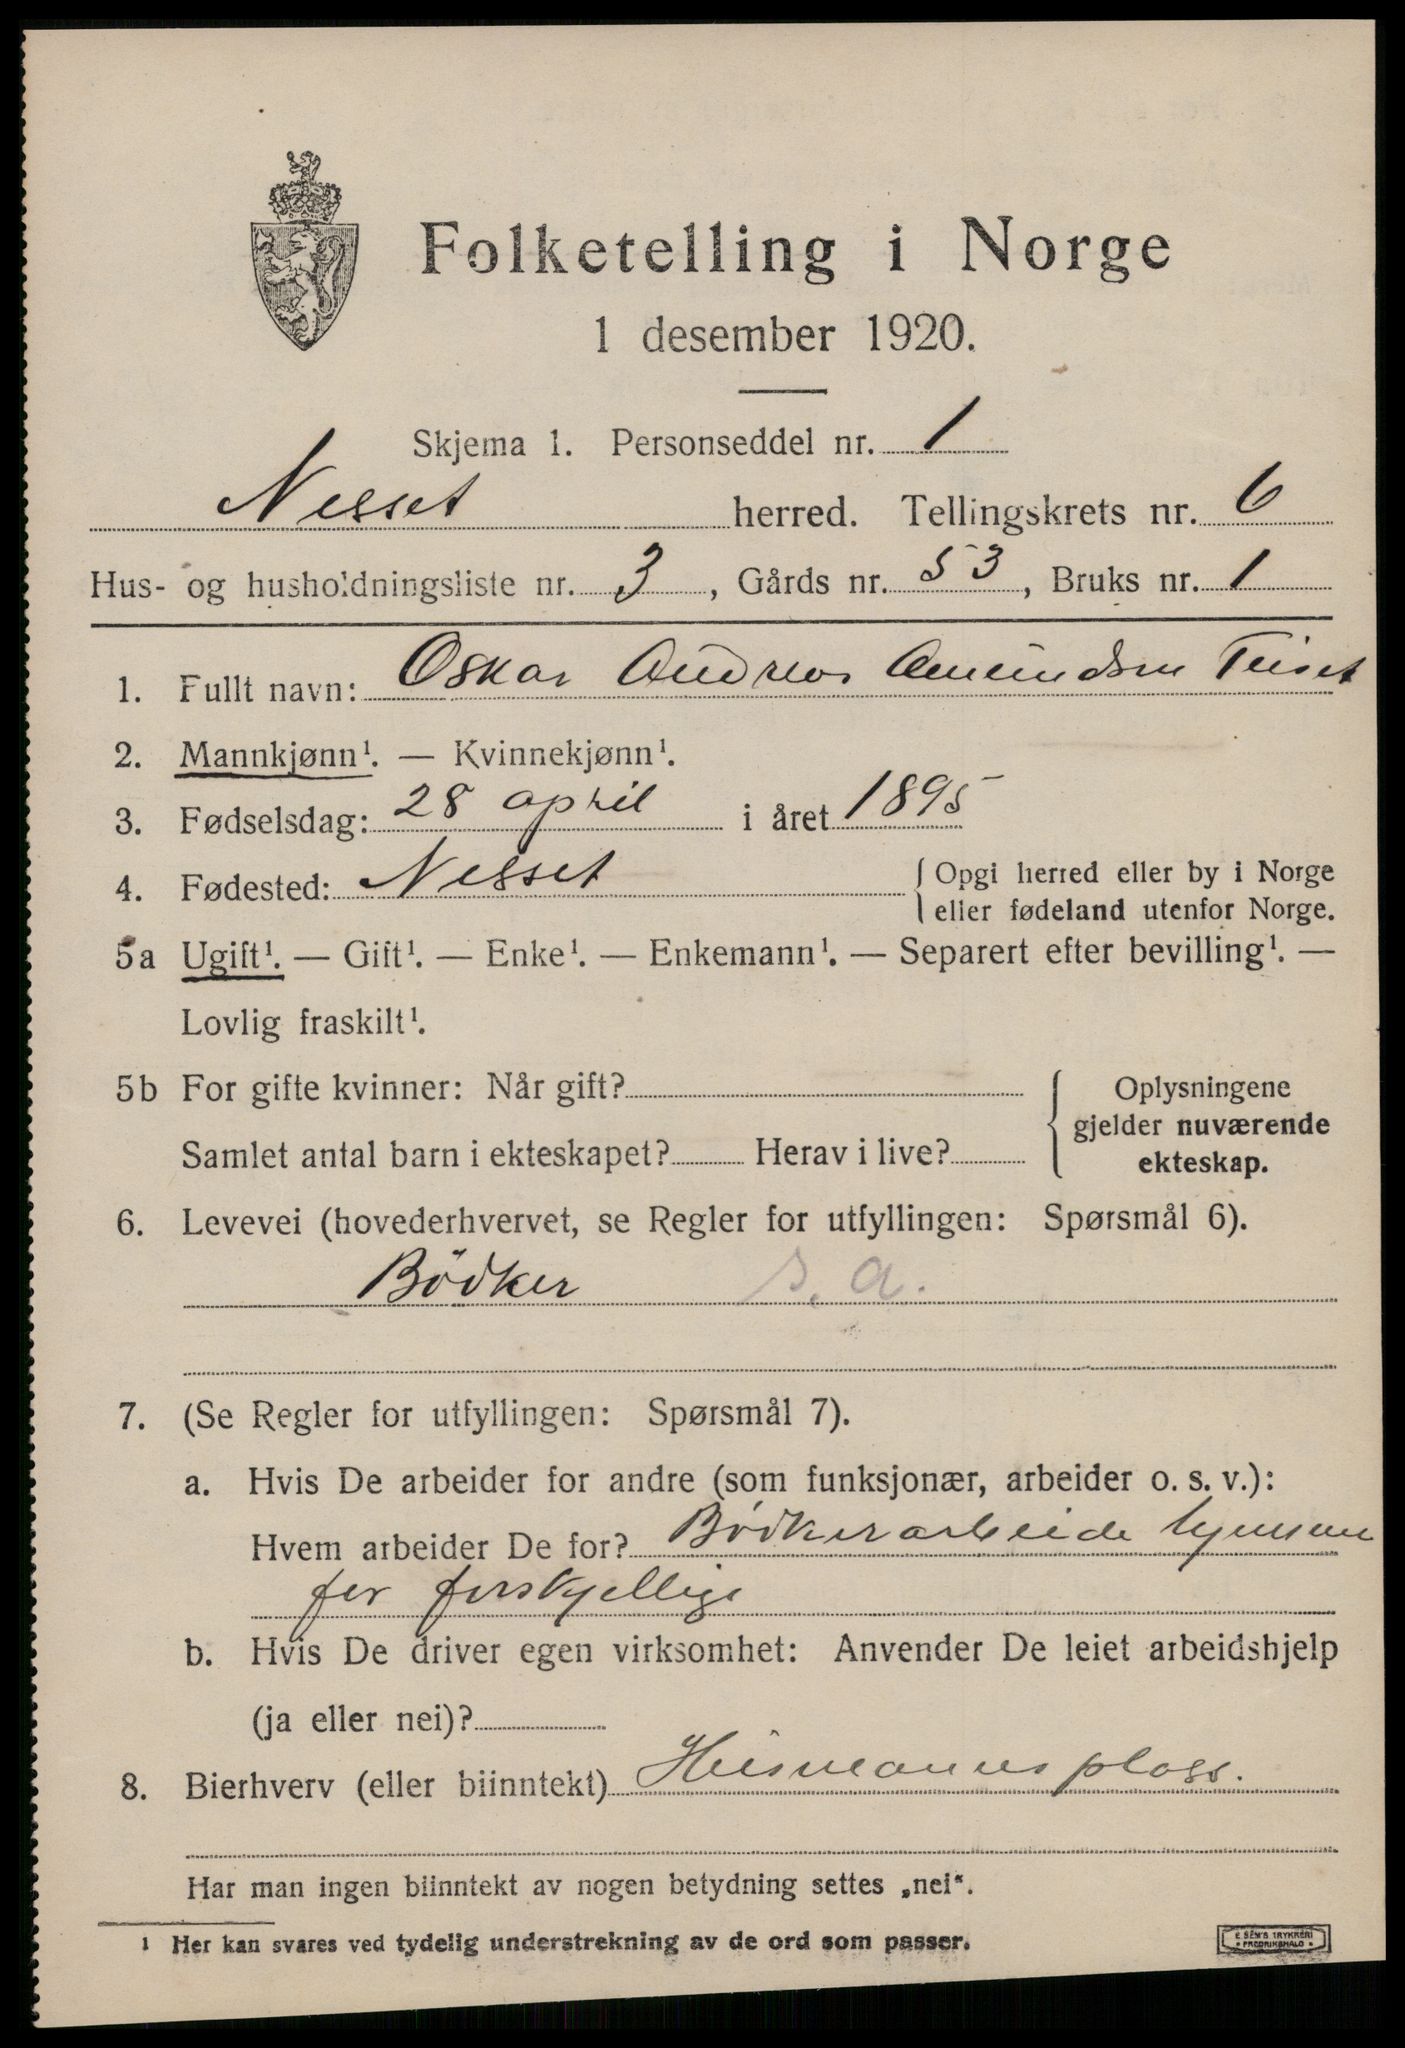 Folketelling i Norge
1 desember 1920.
Skjema 1. Personseddel nr. 1
Nesset herred. Tellingskrets nr. 6
Hus- og husholdningsliste nr. 3, Gårds nr. 53, Bruks nr. 1
1. Fullt navn: Oskar Andreas Amundsen
2. Mannkjønn¹. — Kvinnekjønn¹.
3. Fødselsdag: 28 april i året 1895
4. Fødested: Nesset { Opgi herred eller by i Norge
eller fødeland utenfor Norge.
5a Ugift¹. — Gift¹. — Enke¹. — Enkemann¹. — Separert efter bevilling¹. —
Lovlig fraskilt¹.
5b For gifte kvinner: Når gift?
Samlet antal barn i ekteskapet? Herav i live?
{ Oplysningene
gjelder nuværende
ekteskap.
6. Levevei (hovederhvervet, se Regler for utfyllingen: Spørsmål 6).
Bödker s. a.
7. (Se Regler for utfyllingen: Spørsmål 7).
a. Hvis De arbeider for andre (som funksjonær, arbeider o. s. v.):
Hvem arbeider De for? Bödkerarbeide hjemme
for forskjellige
b. Hvis De driver egen virksomhet: Anvender De leiet arbeidshjelp
(ja eller nei)?
8. Bierhverv (eller biinntekt) Husmannsplass.
Har man ingen biinntekt av nogen betydning settes „nei“.
1 Her kan svares ved tydelig understrekning av de ord som passer.
E. SEM'S TRYKKERI
• FREDRIKSHALD •